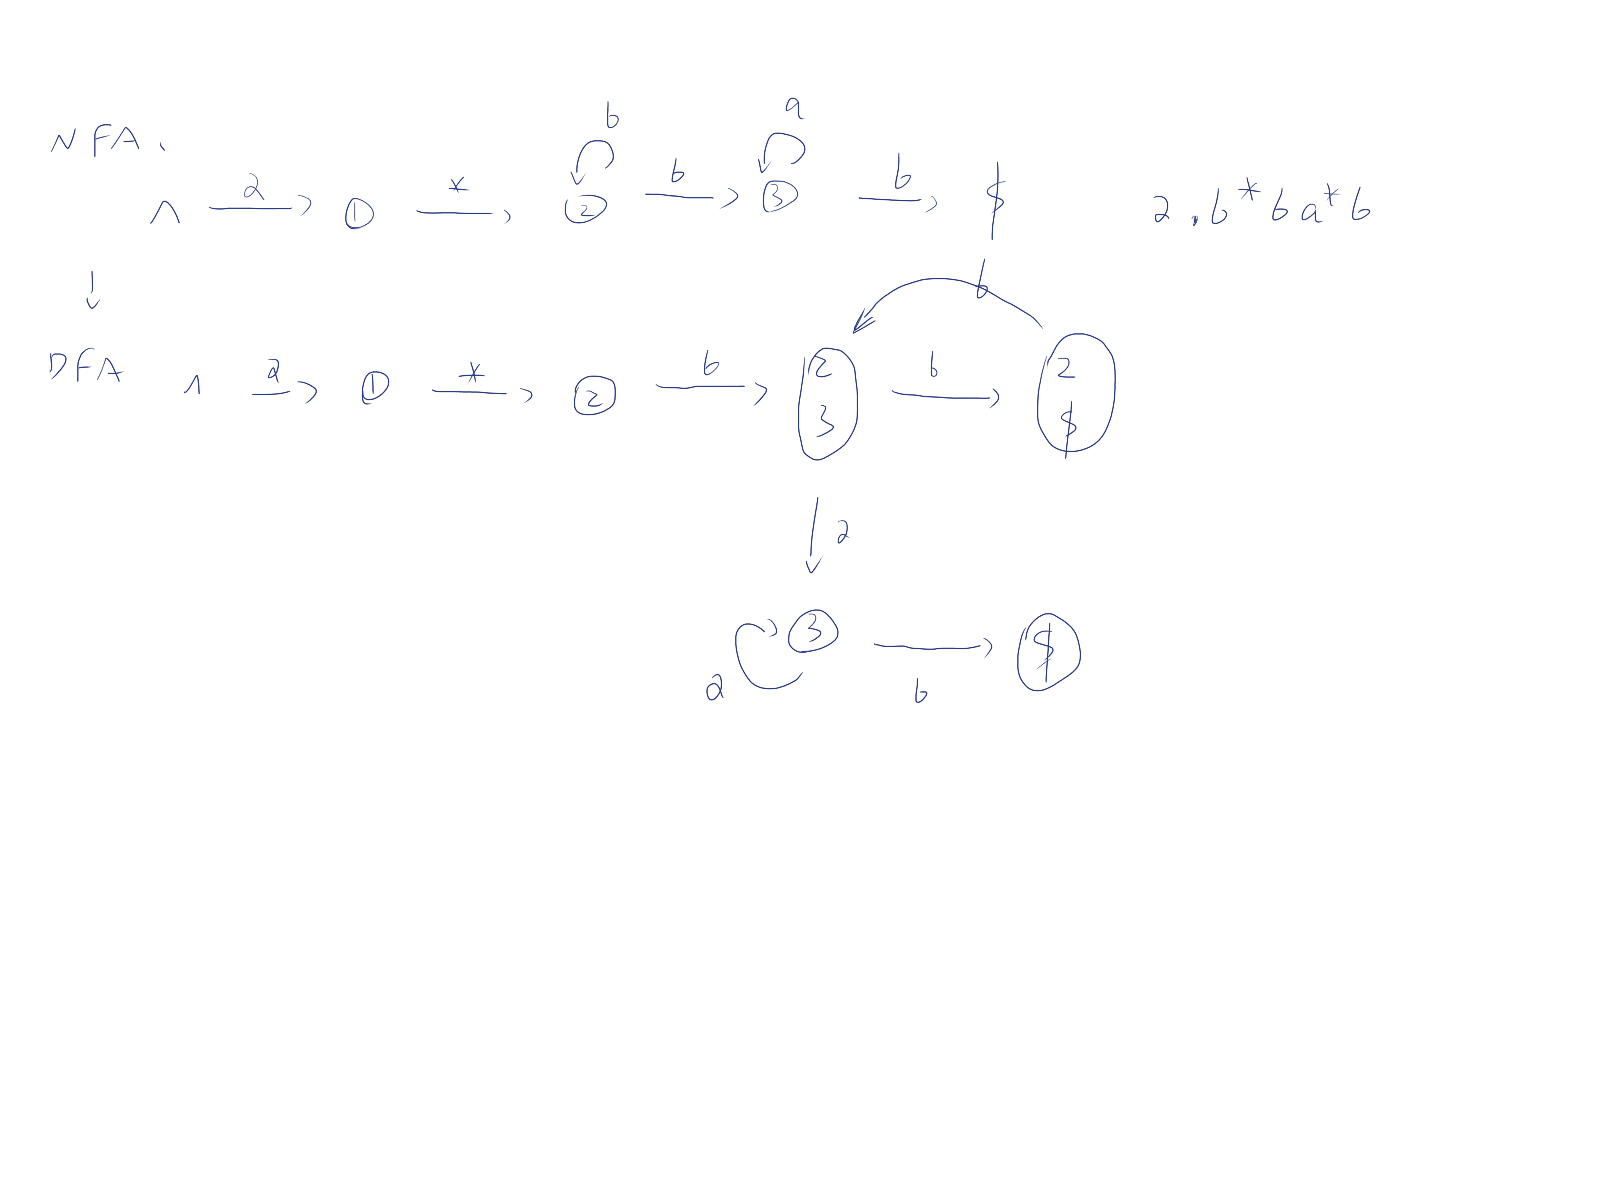 NFA.
b a
^ a ① * ② b ③ b $ a.b*ba*b
↓
b
DFA ^ a ① * ② b 2 3 b 2 $
a
3 $
a b